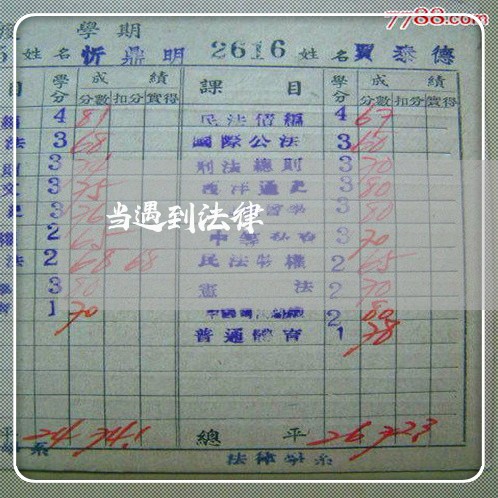 7788.com
學期
5 姓名 忻鼎明 2616 姓名 賈泰德
目 學分 成績 分數 扣分 實得 課目 學分 成績 分數 扣分 實得
4 81 民法債編 4 67
法 3 68 國際公法 3 60
3 刑法總則 3 70
3 75 西洋通史 3 80
3 76 3 80
當遇到法律
2 65 3 70
法 2 68 68 民法物權 2 65
3 80 憲法 2 70
1 70 2 80
普通體育 1 78
平 24 74.1 總平 26 72.3
系 法律學系